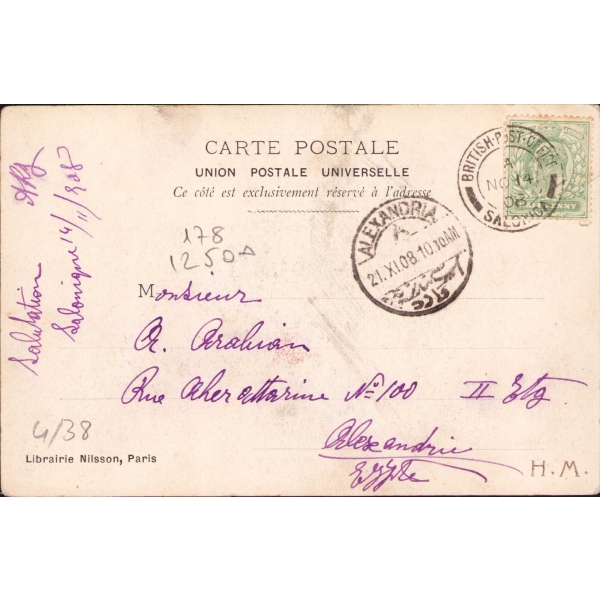 CARTE POSTALE
UNION POSTALE UNIVERSELLE
Ce côté est exclusivement réservé à l'adresse
BRITISH·POST·OFFICE
A
NO 14
08
SALONICA
ALEXANDRIA
21.XI.08.10 30AM
178
1250
Monsieur
A. Arabian
Rue Nº 100 II Etg
Alexandrie
Egypte
Salutation
Salonique 14/11/908
4/38
Librairie Nilsson, Paris
H.M.